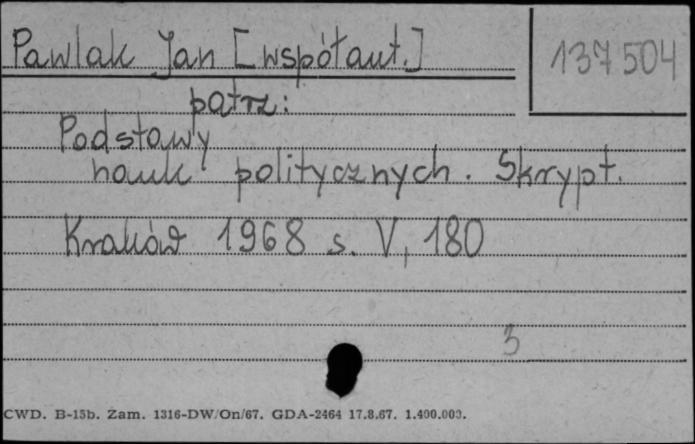 Pawlak Jan [współaut.]
137504
patrz:
Podstawy
nauk politycznych. Skrypt.
Kraków 1968 s. V, 180
3
CWD. B-15b. Zam. 1316-DW/On/67. GDA-2464 17.8.67. 1.400.000.